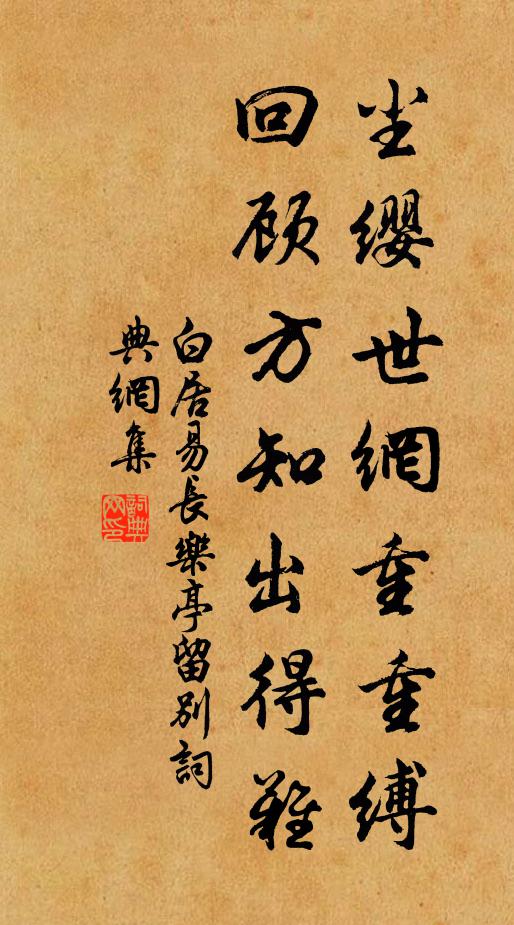 尘缨世網重重缚
回顾方知出得难
白居易長樂亭留别詞
典網集
詞典網印